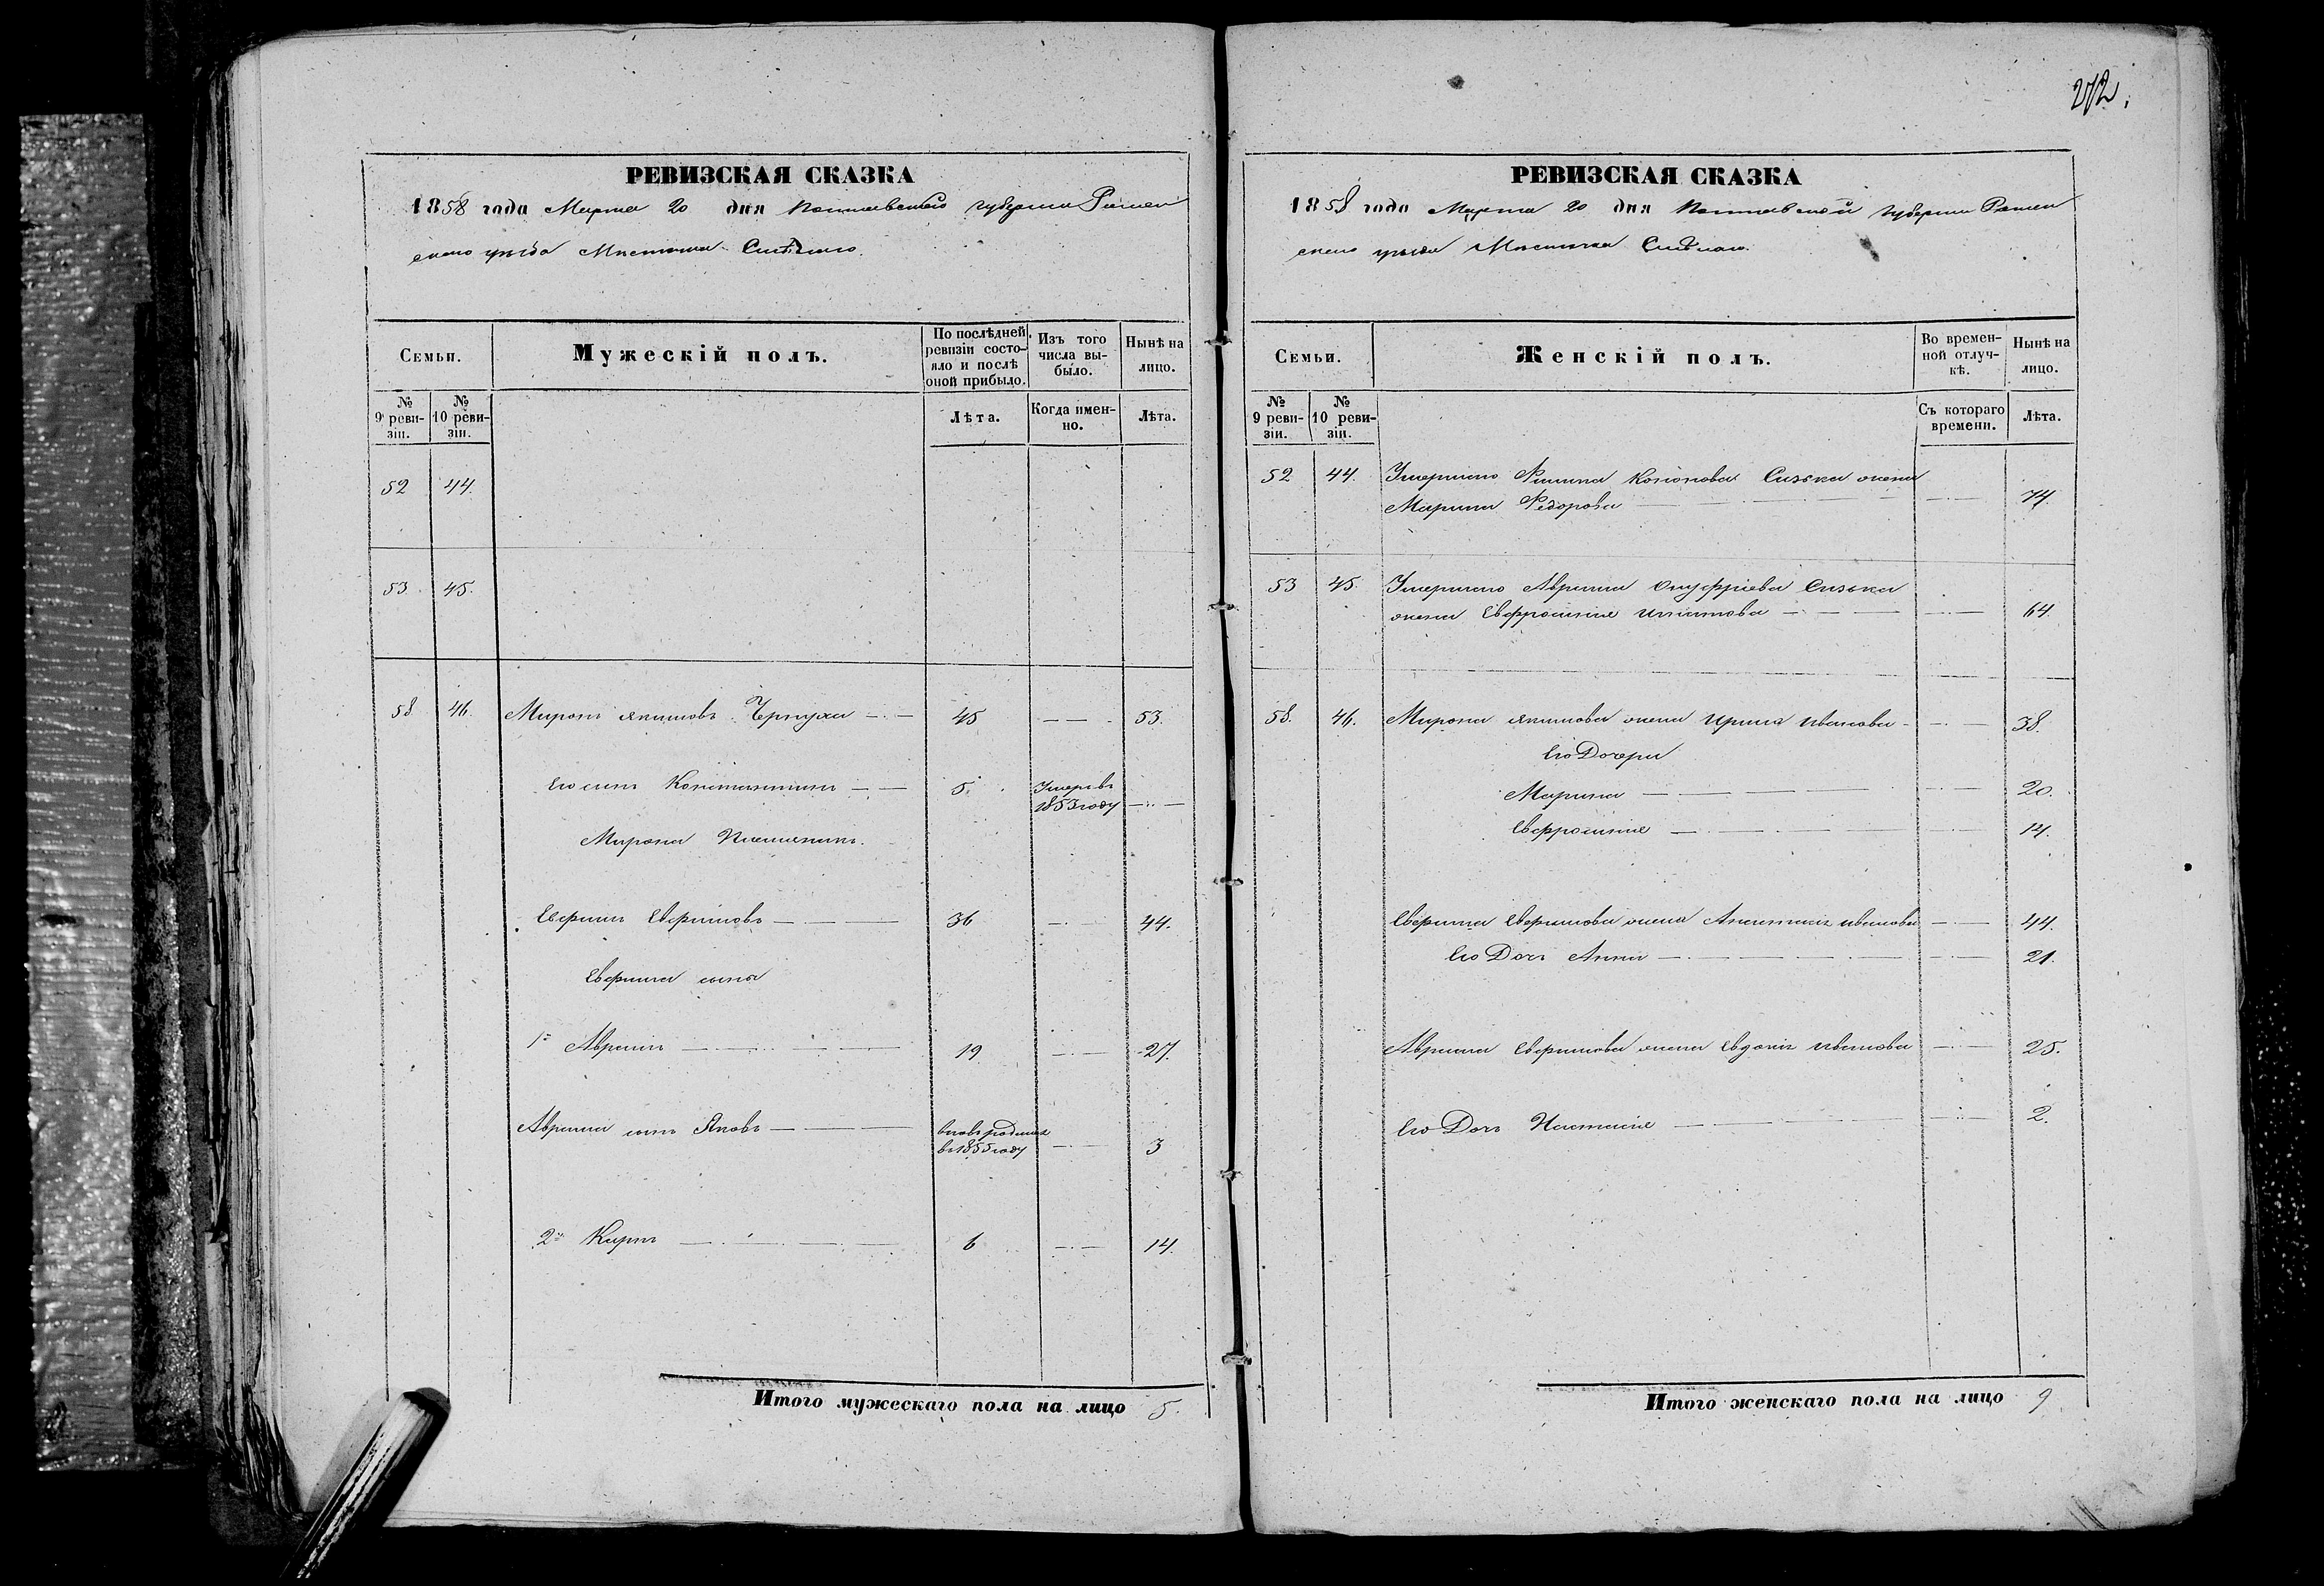 272.
РЕВИЗСКАЯ СКАЗКА
1858 года Марта 20 дня Полтавской губернии Ромен
скаго уѣзда Мѣстечка Смѣлаго.
Семьи.
Мужескій полъ.
По послѣдней ревизіи состояло и послѣ оной прибыло.
Изъ того числа выбыло.
Нынѣ на лицо.
№ 9 ревизіи.
№ 10 ревизіи.
Лѣта.
Когда именно.
Лѣта.
52 44.
53. 45.
58. 46. Миронъ Якимовъ Чернуха 45 53.
Его сынъ Константинъ 5. Умеръ въ 1853 году
Мирона Племянникъ.
Ефимъ Ефимовъ 36 44.
сыны
1й Аврамъ 19 27.
Аврама сынъ Яковъ вновь родился въ 1855 году 3
2й Карпъ 6 14.
Итого мужескаго пола на лицо 5.
РЕВИЗСКАЯ СКАЗКА
1858 года Марта 20 дня Полтавской губернии Ромен
скаго уѣзда Мѣстечка Смѣлаго.
Семьи.
Женскій полъ.
Во временной отлучкѣ.
Нынѣ на лицо.
№ 9 ревизіи.
№ 10 ревизіи.
Съ котораго времени.
Лѣта.
52 44. Умершаго Кононова Сизька жена
Марина Федорова 74.
53 45. Умершаго Аврама Онуфріева Сизька
жена Евфросинія Игнатова 64.
58. 46. Мирона Якимова жена Ирина Иванова 38.
Его Дочери
Марина 20.
Евфросинія 14.
жена Анастасія Иванова 44.
Его Дочь Анна 21.
Аврама жена Евдокія Иванова 25.
Его Дочь Настасія 2.
Итого женскаго пола на лицо 9